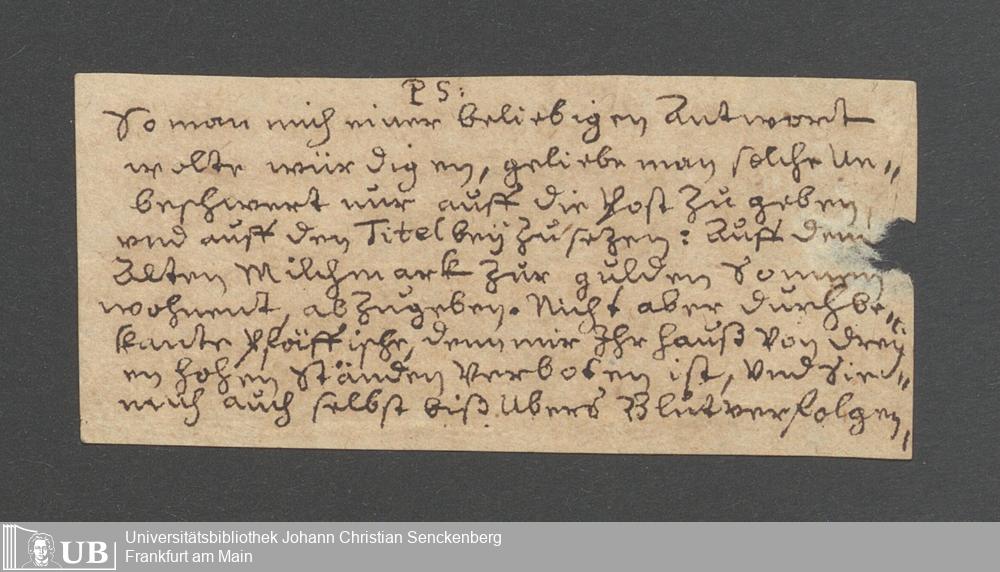 PS:
So man mich einer beliebigen Antwort
wolte würdigen, geliebe man solche Un-
beschwert nur auff die Post Zu geben,
vnd auff den Titel beÿ Zu sezen: Auff dem
Alten Milchmark Zur gulden Sonnen
wohnent, ab Zugeben. Nicht aber durch be-
kante Pfäffische, denn mir Ihr Hauß Von dreÿ
en hohen Ständen Verboten ist, Vnd Sie
mich auch selbst biß Ubers Blut verfolgen,
UB
Universitätsbibliothek Johann Christian Senckenberg
Frankfurt am Main